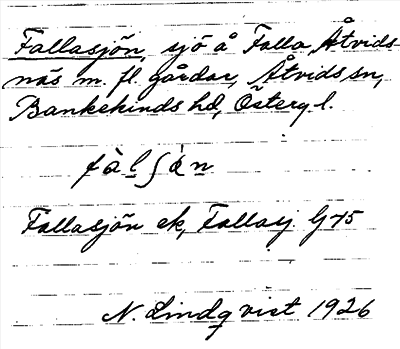 Fallasjön, sjö å Falla, Åtvids-
näs m. fl. gårdar, Åtvids sn,
Bankekinds hd, Österg l.
fàl̲ʃȧn̲
Fallasjön ek, Fallasj. G 45
N. Lindqvist 1926